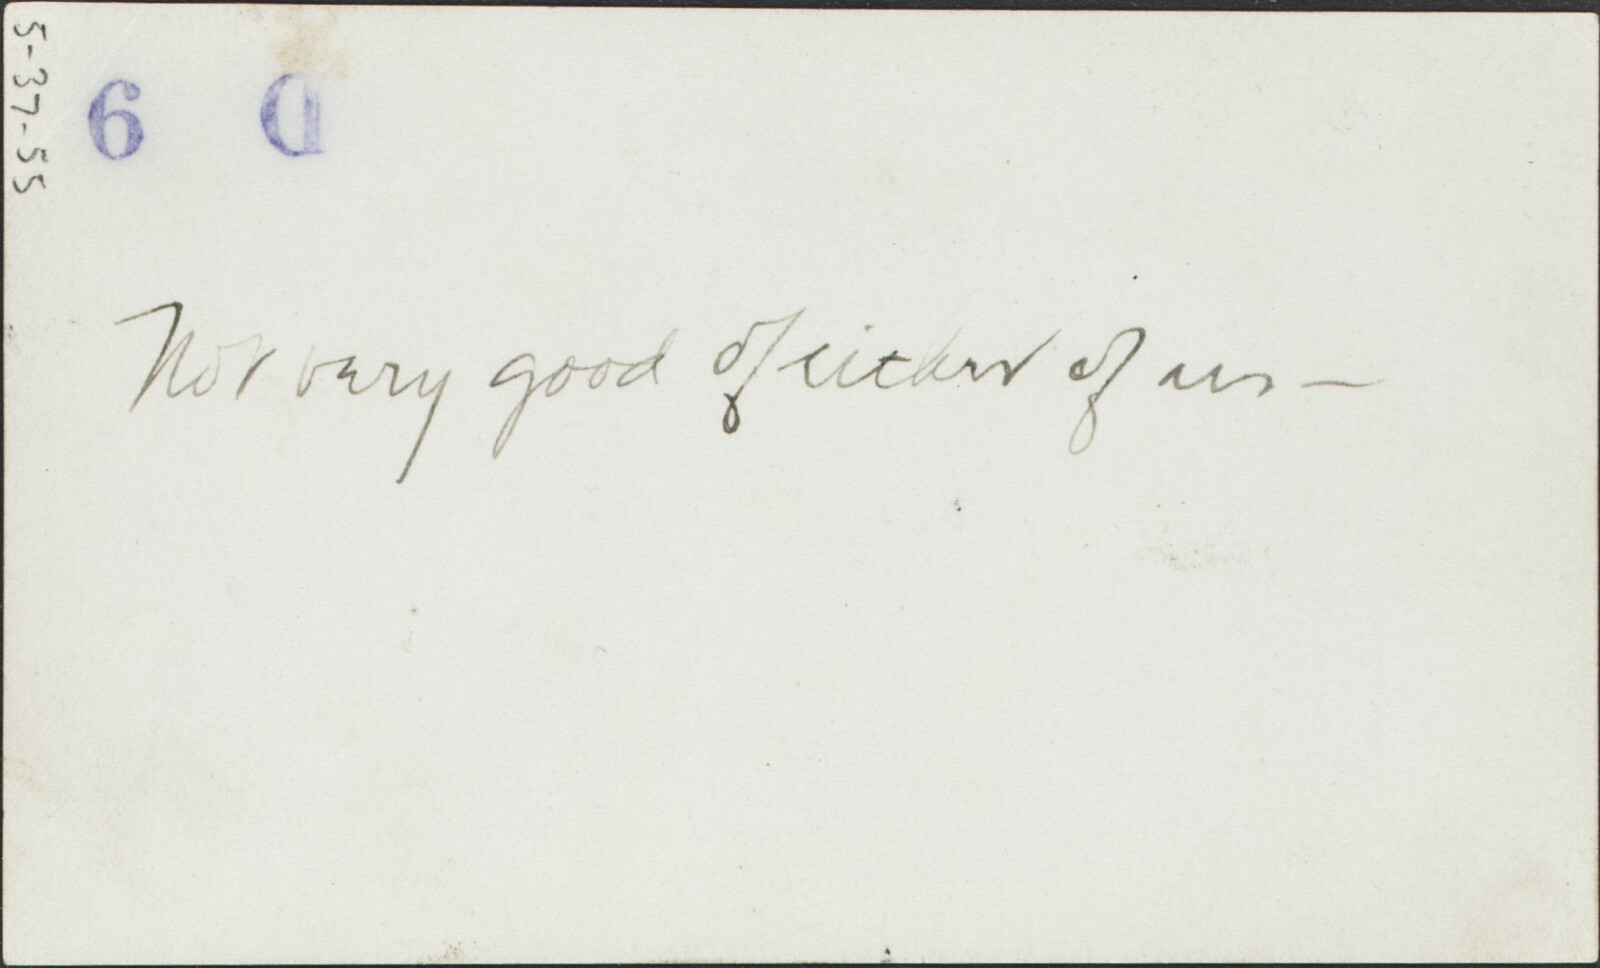 5-37-55
6 D
Not very good of either of us —